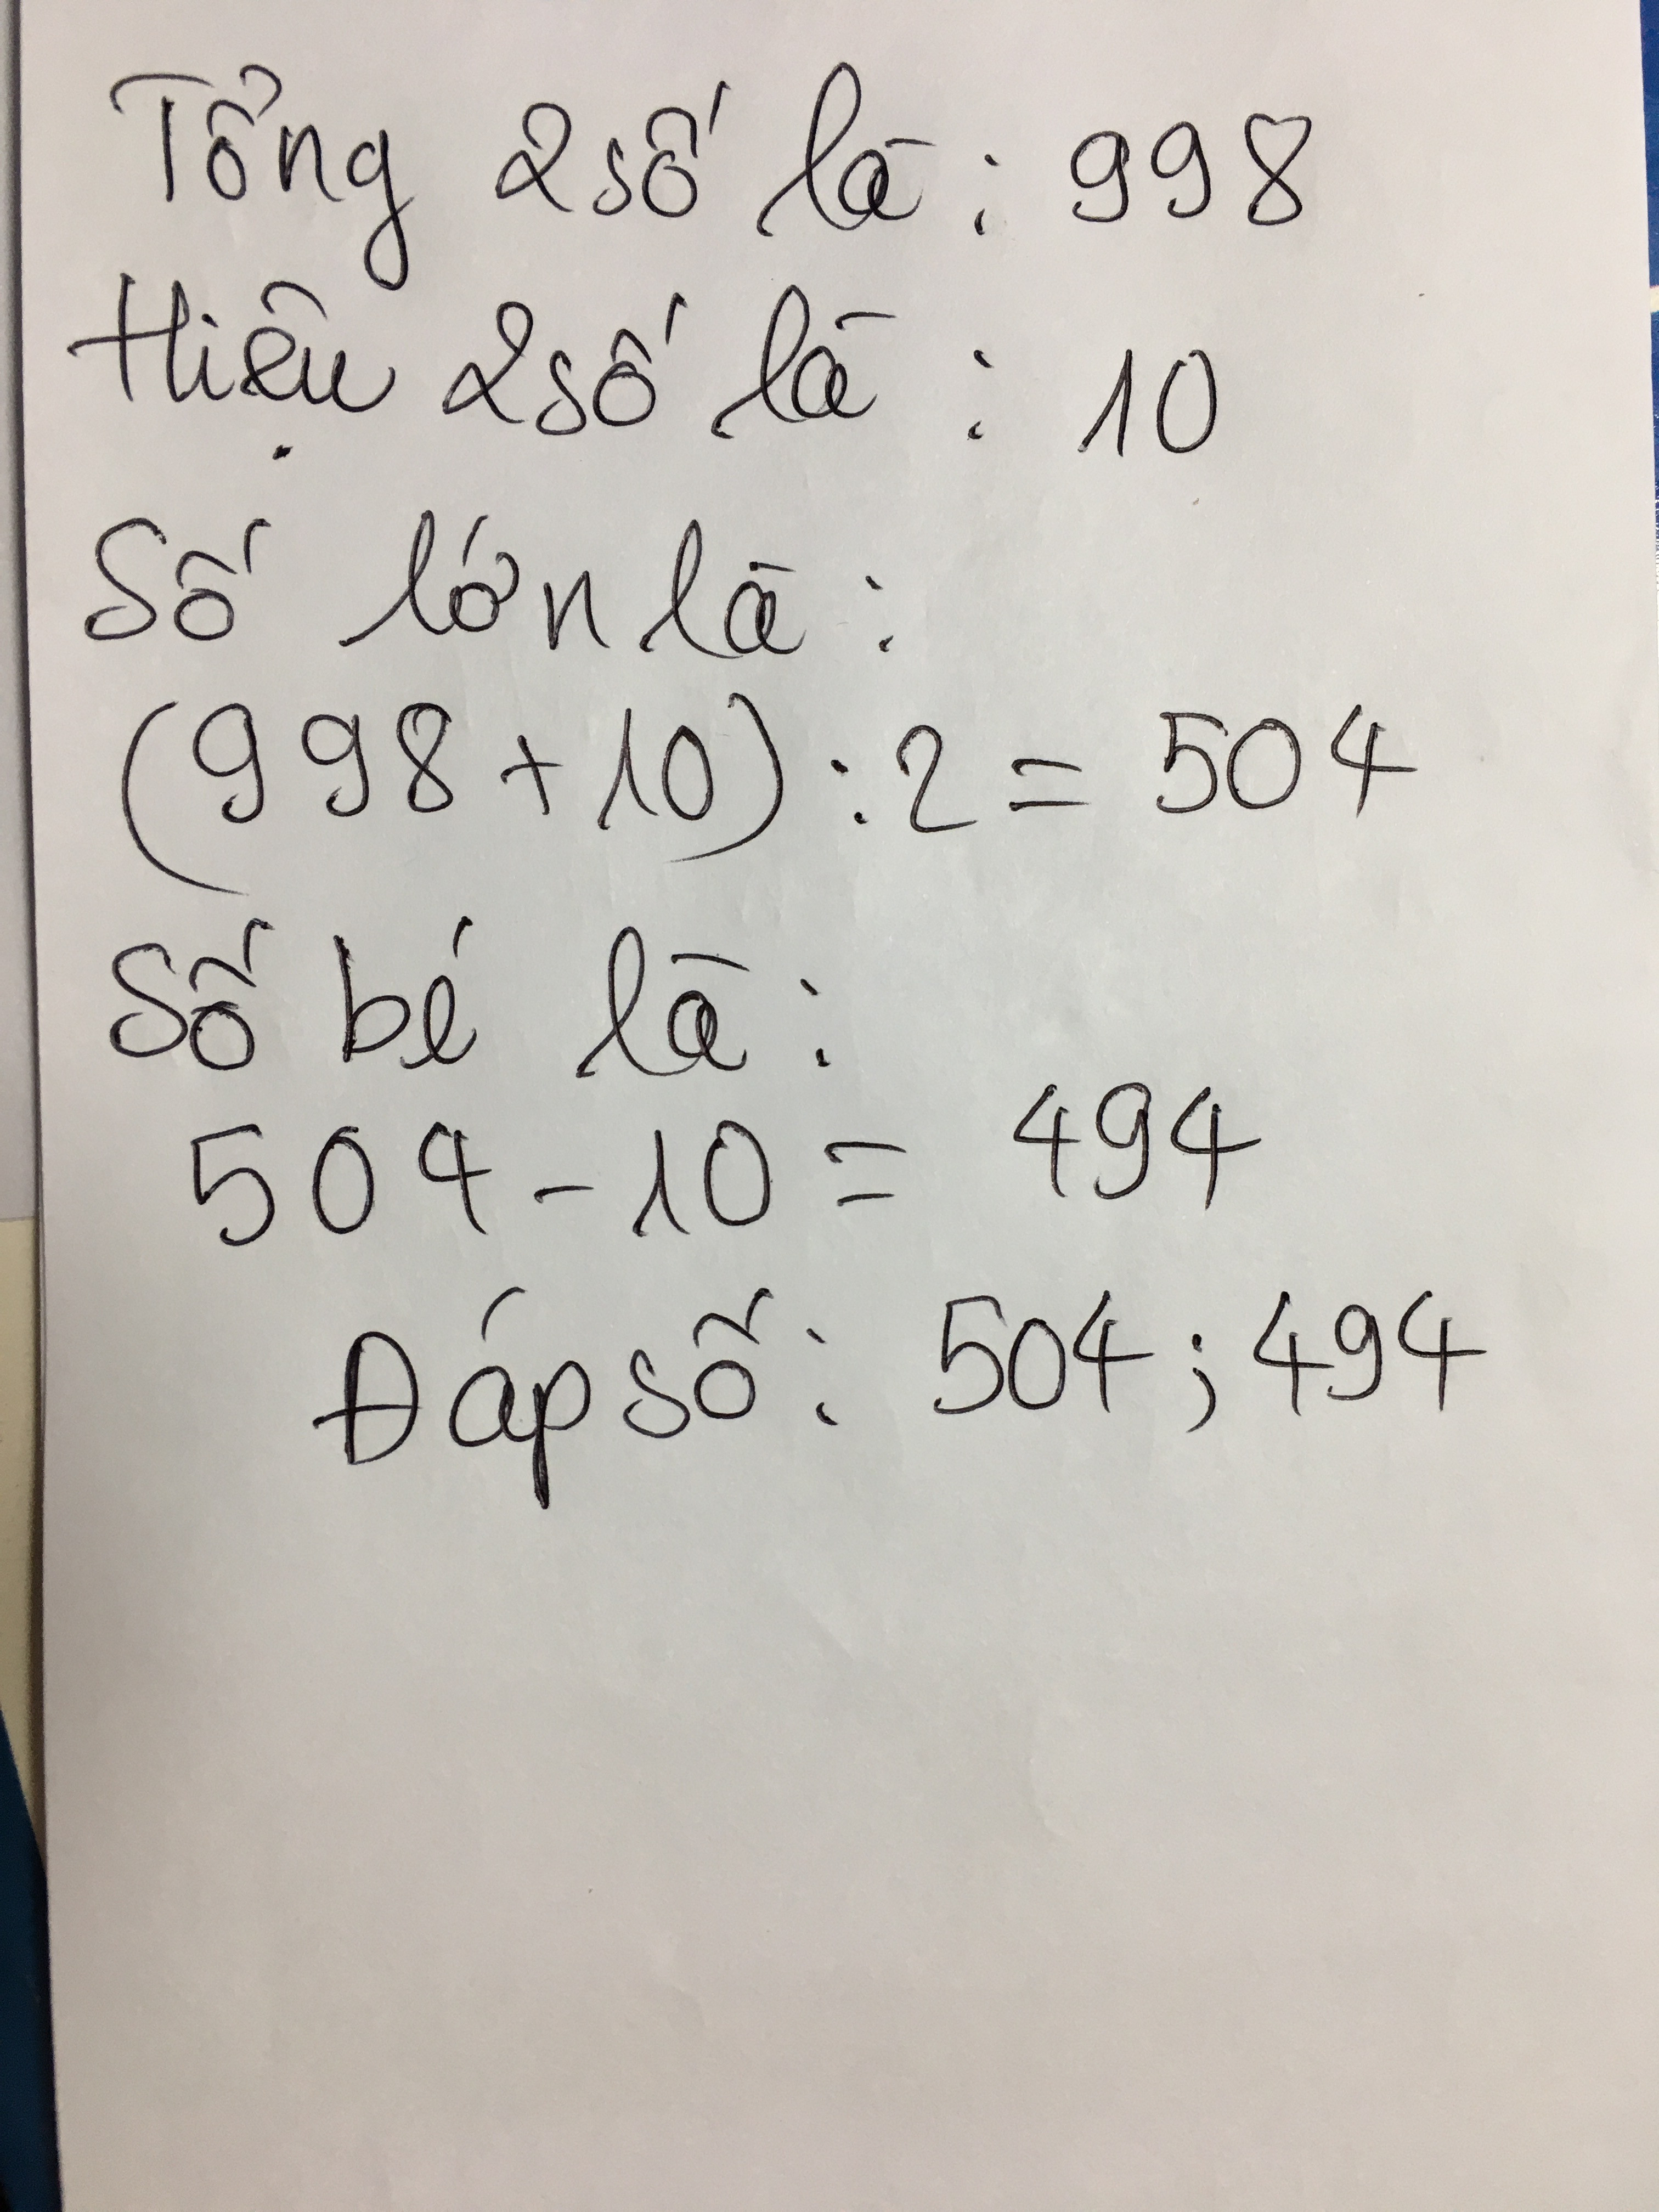 Tổng 2 số là : 998
Hiệu 2 số là : 10
Số lớn là :
(998 + 10) : 2 = 504
Số bé là :
504 - 10 = 494
Đáp số : 504 ; 494